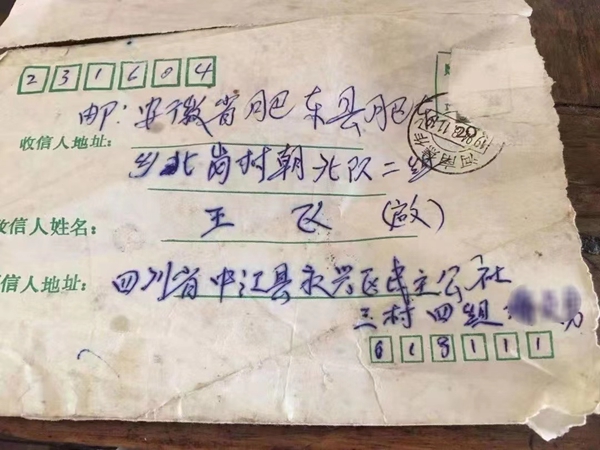 231604
邮:安徽省肥东县肥
收信人地址:
乡北岗村朝北队二组
收信人姓名:
王 飞 (启)
信人地址:
四川省中江县永兴区民主公社
三村四组
618111